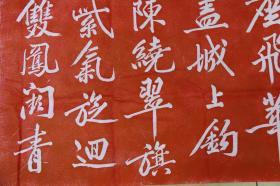 座飛華
蓋城上鈎
陳繞翠旗
紫氣旋迴
雙鳳闕青